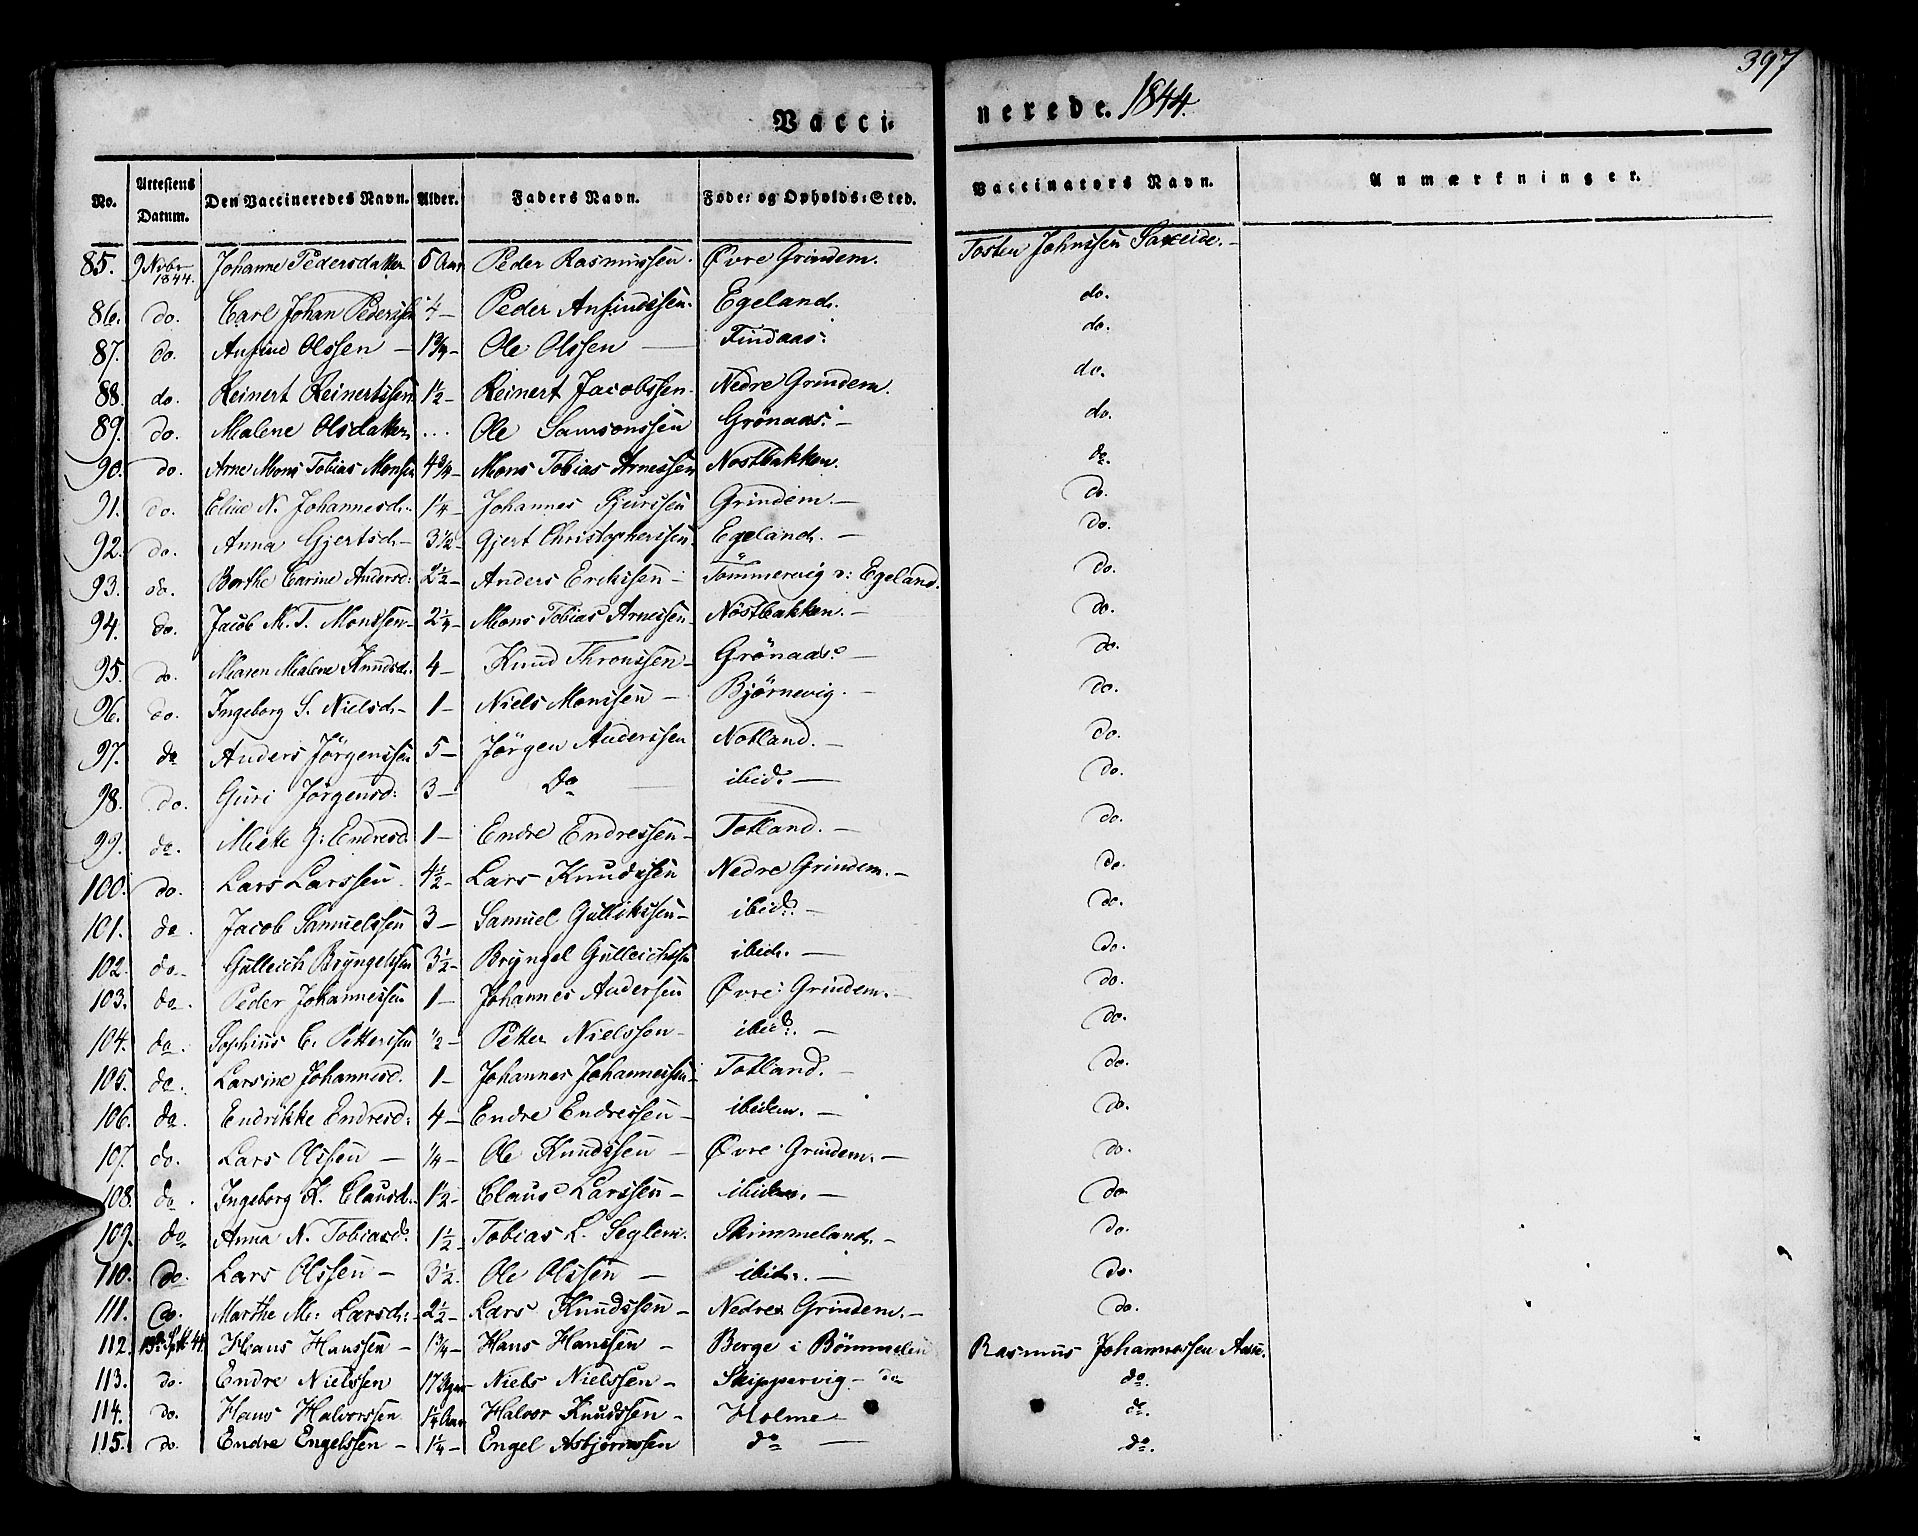 397
Vacci-nerede. 1844.
No. Attestens Datum. Den Vaccineredes Navn. Alder. Faders Navn. Føde- og Opholds-Sted. Vaccinators Navn. Anmærkninger.
85. 9 Novbr 1844. Johanne Pedersdatter 5 Aar Peder Rasmussen. Øvre Grindem. Tosten Johnssen Saxeide.
86. do. Carl Johan Pederssen 4 — Peder Anfindssen. Egeland. do.
87. do. Anfind Olssen — 1¾ — Ole Olssen — Findaas. do.
88. do. Reinert Reinertssen 1½ — Reinert Jacobssen. Nedre Grindem. do.
89. do. Malene Olsdatter ... Ole Samsonssen Grönaas. — do.
90. do. Arne Mons Tobias Monsen 4¾ — Mons Tobias Arnessen Nostbakken. do.
91. do. Eline N. Johannesd. 1¼ — Johannes Sjurssen Grindem. — do.
92. do. Anna Gjertsd. — 3½ — Gjert Christopherssen. Egeland. — do.
93. do. Berthe Carine Andersd: 2½ — Anders Erikssen — Tömmervig v: Egeland. do.
94. do. Jacob M. T. Monssen — 2¼ — Mons Tobias Arnessen — Nöstbakken. — do.
95. do. Maren Malene Knudsd. 4 — Knud Thronssen — Grönaas. — do.
96. do. Ingeborg S. Nielsd. — 1 — Niels Monssen — Bjørnevig. — do.
97. do Anders Jörgenssen 5 — Jörgen Anderssen Notland. — do.
98. do. Guri Jörgensd: 3 — Do — ibid. — do.
99. do. Mette G: Endresd. 1 — Endre Endressen — Totland. — do.
100. do. Lars Larssen. 4½ — Lars Knudssen Nedre Grindem. — do.
101. do. Jacob Samuelssen 3 — Samuel Gullikssen — ibid. — do.
102. do. Gulleich Bryngelssen 3½ — Bryngel Gulleichssen ibid. — do.
103. do. Peder Johannessen 1 — Johannes Andersen Øvre Grindem. — do.
104. do. Sophius E. Pettersen ½ — Petter Nielssen — ibid. — do.
105. do. Larsine Johannesd. 1 — Johannes Johannessen — Totland. — do.
106. do. Endrikke Endresd: 4 — Endre Endressen — ibidem. — do.
107. do. Lars Olssen — ¼ — Ole Knudssen — Øvre Grindem. — do.
108. do. Ingeborg K. Clausd. 1½ — Claus Larssen — ibidem. — do.
109. do Anna N. Tobiasd. 1½ — Tobias L. Seglem. Skimmeland. — do.
110. do. Lars Olssen — 3½. Ole Olssen — ibid. — do.
111. do. Marthe M: Larsd: 2½ — Lars Knudssen — Nedre Grindem. — do.
112. 13de Sept. 44 Hans Hanssen — 1¾ — Hans Hanssen — Berge i Bömmelen Rasmus Johannessen Aase.
113. do. Endre Nielssen 17 Uger — Niels Nielssen — Skippervig — do do.
114. do. Hans Halvorssen 1¼ Aar Halvor Knudssen — Holme — do.
115. do. Endre Engelssen — 1¼ — Engel Asbjørnssen do — do.